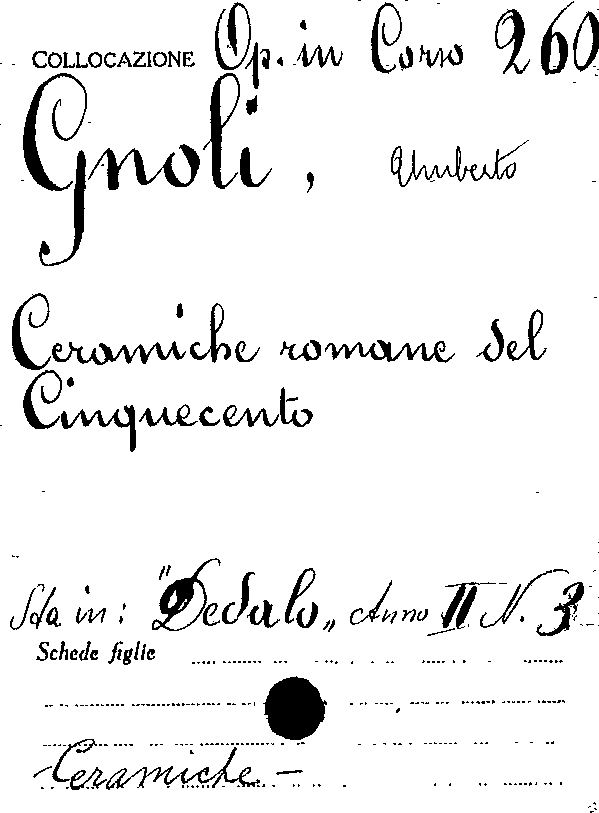 COLLOCAZIONE Op. in Corso 260
Gnoli, Umberto
Ceramiche romane del
Cinquecento
Sta in: "Dedalo„ Anno II N. 3
Schede figlie
-Ceramiche-